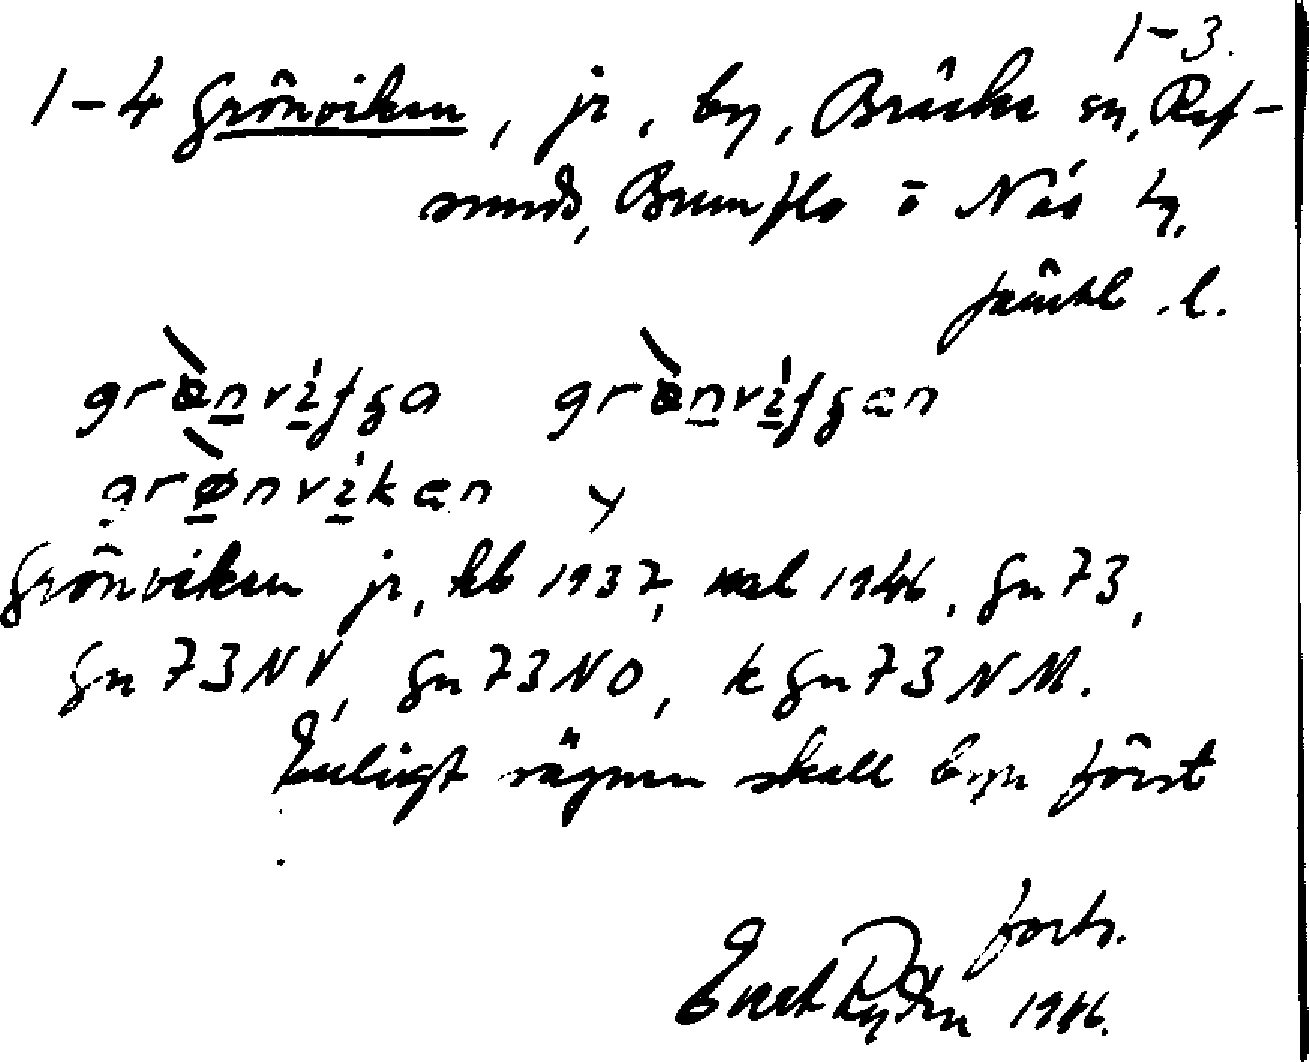 1-3.
1-4 Grönviken, jr, by, Bräcke sn, Ref-
sunds, Brunflo o Näs tg,
Jämtl. l.
grǿnvifga grǿnvifgæn
grø̀nvikæn
Grönviken jr, kb 1937, mtl 1946, Gn 73,
Gn 73 NV, Gn 73 NO, k Gn 73 NM.
Enligt sägnen skall byn först
forts.
Evert Rydén 1946.